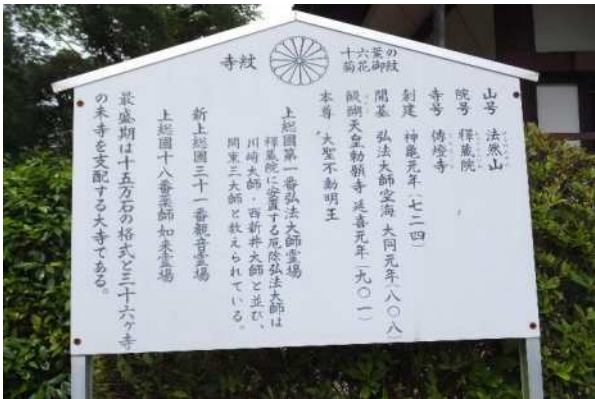 十六葉の
菊花御紋
寺紋
山号 法燃山
院号 釋蔵院
寺号 傳燈寺
創建 神亀元年(七二四)
開基 弘法大師空海 大同元年(八〇八)
醍醐天皇勅願寺 延喜元年(九〇一)
本尊 大聖不動明王
上総國第一番弘法大師霊場
釋蔵院に安置する厄除弘法大師は
川崎大師・西新井大師と並び、
関東三大師と数えられている。
新上総國三十一番観音霊場
上総國十八番薬師如来霊場
最盛期は十五万石の格式と三十六ヶ寺
の末寺を支配する大寺である。